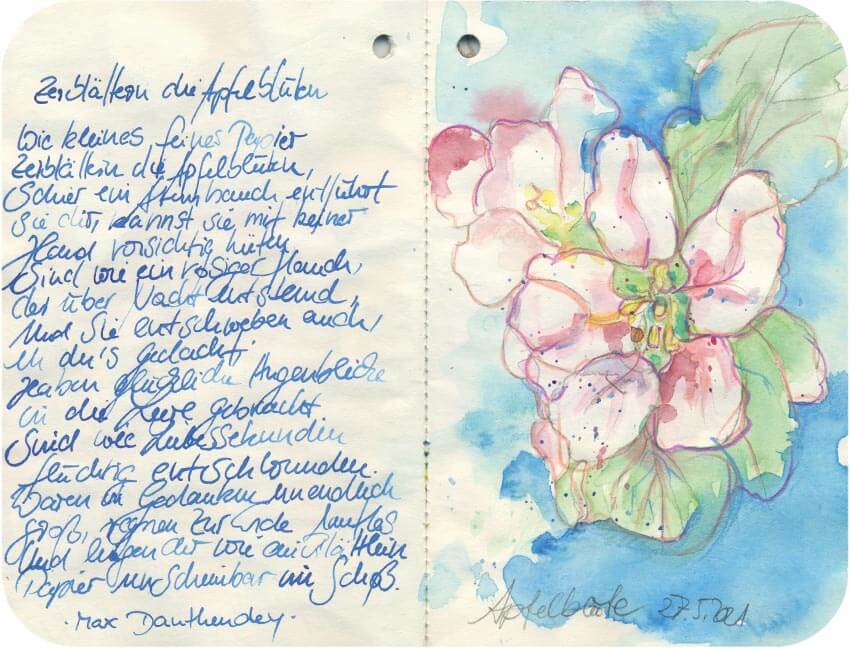 Zerblättern die Apfelblüten
Wie kleines feines Papier
Zerblättern die Apfelblüten,
Schier ein Atemhauch entführt
sie dir, kannst sie mit keiner
Hand vorsichtig hüten
Sind wie ein rosiger Hauch,
der über Nacht entstand,
Und sie entschweben auch,
eh du's gedacht;
Haben glückliche Augenblicke
in die Leere gebracht
Sind wie Liebessekunden
flüchtig entschwunden.
Waren in Gedanken unendlich
groß, regnen zur Erde lautlos
Und liegen dir wie ein Blättlein
Papier unscheinbar im Schoß.
· Max Dauthendey ·
Apfelblüte 27.5.2021